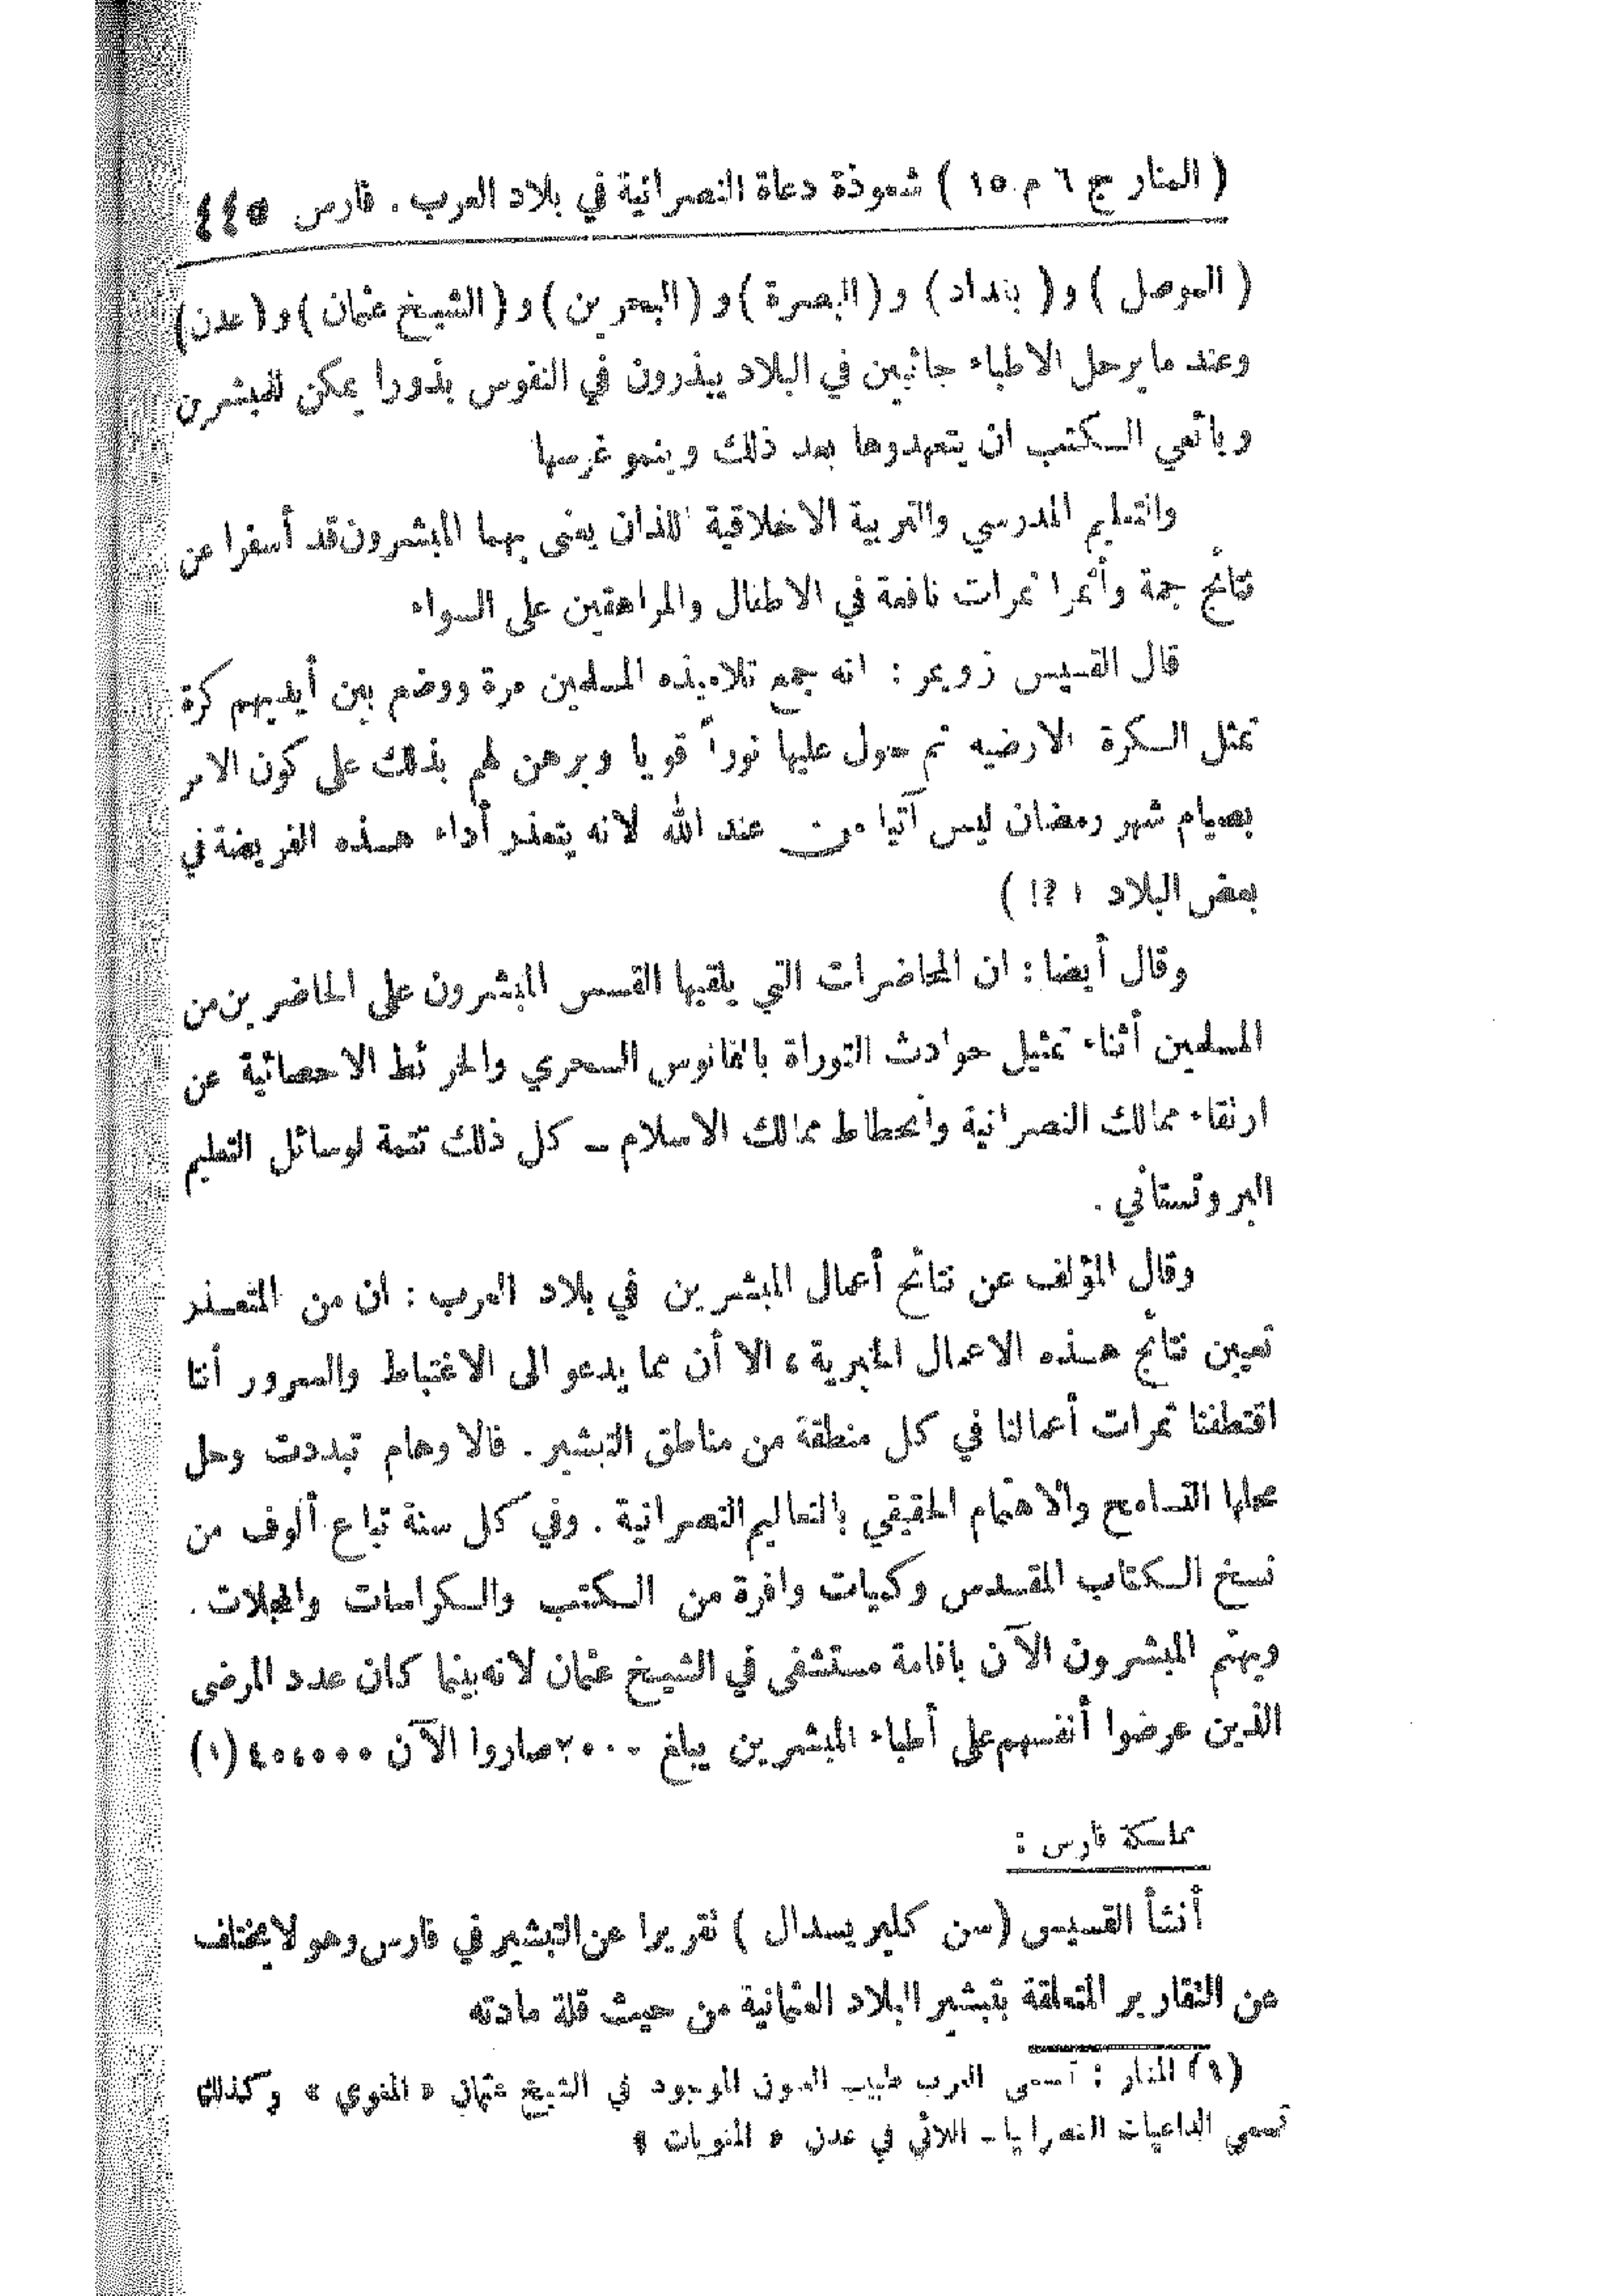 ( المنار ج ٦ م ١٥ ) شعوذة دعاة النصرانية في بلاد العرب . فارس ٤٤٥
( الموصل ) و ( بغداد ) و ( البصرة ) و ( البحرين ) و ( الشيخ عثمان ) و ( عدن )
وعند ما يرحل الاطباء جائبين في البلاد يبذرون في النفوس بذورا يمكن للمبشرين
وبائعي الكتب ان يتعهدوها بعد ذلك وينمو غرسها
والتعليم المدرسي والتربية الاخلاقية اللذان يعنى بهما المبشرون قد أسفرا عن
نتائج جمة وأثمرا ثمرات نافعة في الاطفال والمراهقين على السواء
قال القسيس زويمر : انه جمع تلاميذه المسلمين مرة ووضع بين أيديهم كرة
تمثل الكرة الارضيه ثم حول عليها نوراً قويا وبرهن لهم بذلك على كون الامر
بصيام شهر رمضان ليس آتيا من عند الله لانه يتعذر أداء هذه الفريضة في
بعض البلاد ( !?! )
وقال أيضا : ان المحاضرات التي يلقيها القسس المبشرون على الحاضرين من
المسلمين أثناء تمثيل حوادث التوراة بالفانوس السحري والخرائط الاحصائية عن
ارتقاء ممالك النصرانية وانحطاط ممالك الاسلام ــ كل ذلك تتمة لوسائل التعليم
البروتستاني .
وقال المؤلف عن نتائج أعمال المبشرين في بلاد العرب : ان من المتعذر
تعيين نتائج هذه الاعمال الخيرية ، الا أن مما يدعو الى الاغتباط والسرور أننا
اقتطفنا ثمرات أعمالنا في كل منطقة من مناطق التبشير . فالاوهام تبددت وحل
محلها التسامح والاهتمام الحقيقي بالتعاليم النصرانية . وفي كل سنة تباع ألوف من
نسخ الكتاب المقدس وكميات وافرة من الكتب والكراسات والمجلات .
ويهتم المبشرون الآن باقامة مستشفى في الشيخ عثمان لانه بينما كان عدد المرضى
الذين عرضوا أنفسهم على أطباء المبشرين يبلغ صاروا الآن (١)
مملكة فارس :
أنشأ القسيس (سن كلير يسدال ) تقريرا عن التبشير في فارس وهو لا يختلف
عن التقارير المتعلقة بتبشير البلاد العثمانية من حيث قلة مادته
(١) المنار : تسمى العرب طبيب العيون الموجود في الشيخ عثمان « المغوي » وكذلك
تسمي الداعيات النصرانيات اللائي في عدن « المغويات »